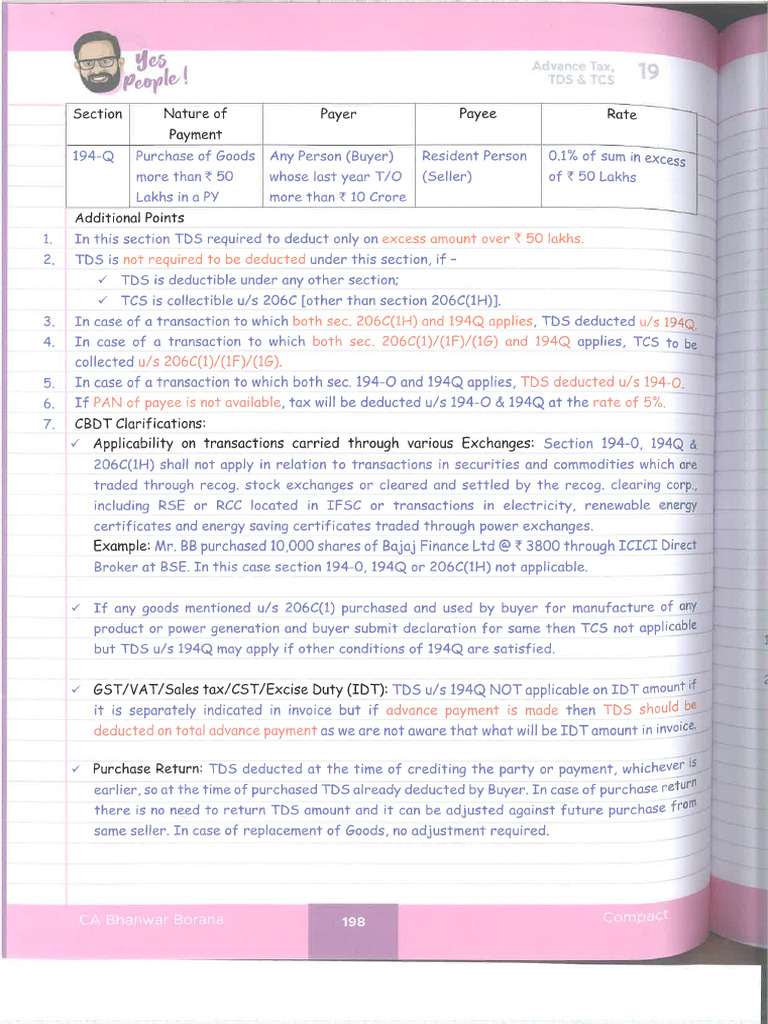 Yes
People!
Advance Tax,
TDS & TCS
19
Section Nature of Payment Payer Payee Rate
194-Q Purchase of Goods more than ₹ 50 Lakhs in a PY Any Person (Buyer) whose last year T/O more than ₹ 10 Crore Resident Person (Seller) 0.1% of sum in excess of ₹ 50 Lakhs
Additional Points
1. In this section TDS required to deduct only on excess amount over ₹ 50 lakhs.
2. TDS is not required to be deducted under this section, if –
✓ TDS is deductible under any other section;
✓ TCS is collectible u/s 206C [other than section 206C(1H)].
3. In case of a transaction to which both sec. 206C(1H) and 194Q applies, TDS deducted u/s 194Q.
4. In case of a transaction to which both sec. 206C(1)/(1F)/(1G) and 194Q applies, TCS to be
collected u/s 206C(1)/(1F)/(1G).
5. In case of a transaction to which both sec. 194-O and 194Q applies, TDS deducted u/s 194-O.
6. If PAN of payee is not available, tax will be deducted u/s 194-O & 194Q at the rate of 5%.
7. CBDT Clarifications:
✓ Applicability on transactions carried through various Exchanges: Section 194-O, 194Q &
206C(1H) shall not apply in relation to transactions in securities and commodities which are
traded through recog. stock exchanges or cleared and settled by the recog. clearing corp.,
including RSE or RCC located in IFSC or transactions in electricity, renewable energy
certificates and energy saving certificates traded through power exchanges.
Example: Mr. BB purchased 10,000 shares of Bajaj Finance Ltd @ ₹ 3800 through ICICI Direct
Broker at BSE. In this case section 194-O, 194Q or 206C(1H) not applicable.
✓ If any goods mentioned u/s 206C(1) purchased and used by buyer for manufacture of any
product or power generation and buyer submit declaration for same then TCS not applicable
but TDS u/s 194Q may apply if other conditions of 194Q are satisfied.
✓ GST/VAT/Sales tax/CST/Excise Duty (IDT): TDS u/s 194Q NOT applicable on IDT amount if
it is separately indicated in invoice but if advance payment is made then TDS should be
deducted on total advance payment as we are not aware that what will be IDT amount in invoice.
✓ Purchase Return: TDS deducted at the time of crediting the party or payment, whichever is
earlier, so at the time of purchased TDS already deducted by Buyer. In case of purchase return
there is no need to return TDS amount and it can be adjusted against future purchase from
same seller. In case of replacement of Goods, no adjustment required.
CA Bhanwar Borana
198
Compact